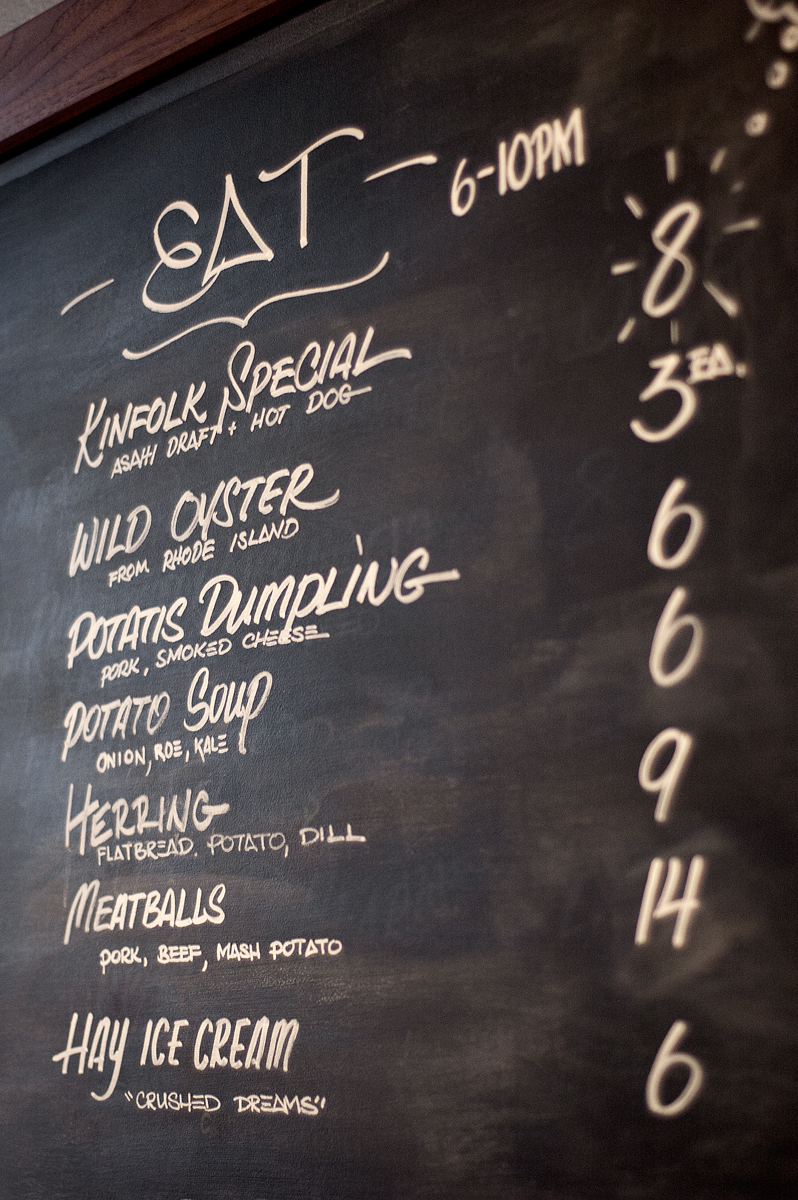 EAT — 6-10PM
KINFOLK SPECIAL 8
ASAHI DRAFT + HOT DOG
WILD OYSTER 3 EA.
FROM RHODE ISLAND
POTATIS DUMPLING 6
PORK, SMOKED CHEESE
POTATO SOUP 6
ONION, ROE, KALE
HERRING 9
FLATBREAD. POTATO, DILL
MEATBALLS 14
PORK, BEEF, MASH POTATO
HAY ICE CREAM 6
"CRUSHED DREAMS"